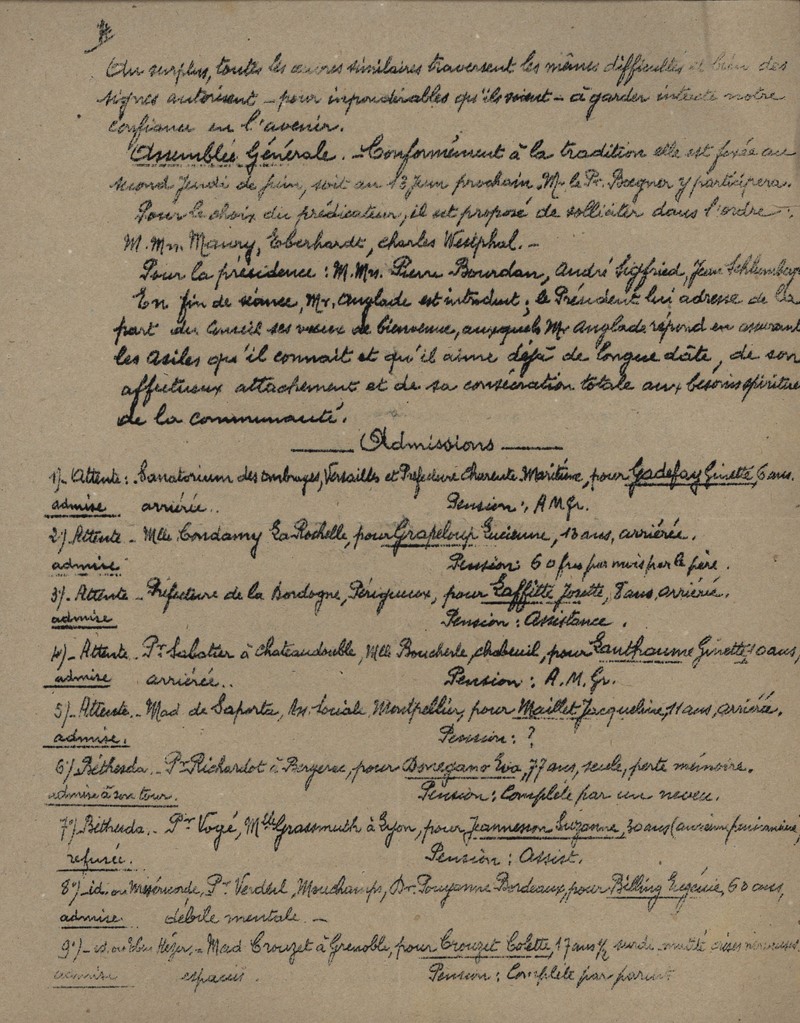 Au surplus, toutes les œuvres similaires traversent les mêmes difficultés et bien des
signes autorisent – pour impondérables qu'ils soient – à garder intacte notre
confiance en l'avenir.
Assemblée Générale. – Conformément à la tradition elle est fixée au
second Jeudi de Juin, soit au 13 Juin prochain. Mr. le Pr. Bœgner y participera.
Pour le choix du prédicateur, il est proposé de solliciter dans l'ordre :
M.Mrs. Maury, Eberhardt, Charles Westphal. –
Pour la présidence : M.Mrs. Pierre Bourdan, André Sigfried, Jean Schlumberger
En fin de séance, Mr. Anglade est introduit ; le Président lui adresse de la
part du Conseil ses vœux de bienvenue, auxquels Mr Anglade répond en assurant
les Asiles qu'il connait et qu'il aime déjà de longue dâte, de son
affectueux attachement et de sa consécration totale aux besoins spirituels
de la communauté.
Admissions
1)- Attente : Sanatorium des Ombrages, Versailles et Préfecture Charente Maritime, pour Gadefay Ginette, 6 ans.
admise arriérée.. Pension : A M Gr.
2°) Attente - Mlle Condamy La Rochelle, pour Grapeloup Lucienne, 13 ans, arriérée.
admise Pension 60 frs par mois par le père.
3°)- Attente - Préfecture de la Dordogne, Périgueux, pour Laffitte Josette, 8 ans, arriérée.
admise Pension : Assistance.
4°)- Attente - Pr Sabatier à Chateaudouble, Mlle Boucherle, Chabeuil, pour Lanthaume Ginette, 10 ans,
admise arriérée.. Pension : A.M. Gr.
5°)- Attente - Mad de Saporta, As. Sociale, Montpellier, pour Maillet Jacqueline, 11 ans, arriérée.
admise. Pension : ?
6°) Béthesda. - Pr Richardot à Bergerac, pour Donegano Eva, 77 ans, seule, perte mémoire.
admise à son tour. Pension : Complète par un neveu.
7°) Béthesda. - Pr Vogé, Mlle Grassmuth à Lyon, pour Jeannesson Suzanne, 30 ans (ancienne pensionnaire)
refusée. Pension : Assist.
8°) id. ou Miséricorde, Pr. Verdeil, Mouchamps, Dr. Pouyanne Bordeaux, pour Billing Eugénie, 60 ans,
admise débile mentale. –
9°)- id. ou Eben Hézer. - Mad Crouzet à Grenoble, pour Crouzet Colette, 17 ans ½ surdi-mutité crises nerveuses
admise espacés. Pension : Complète par parent